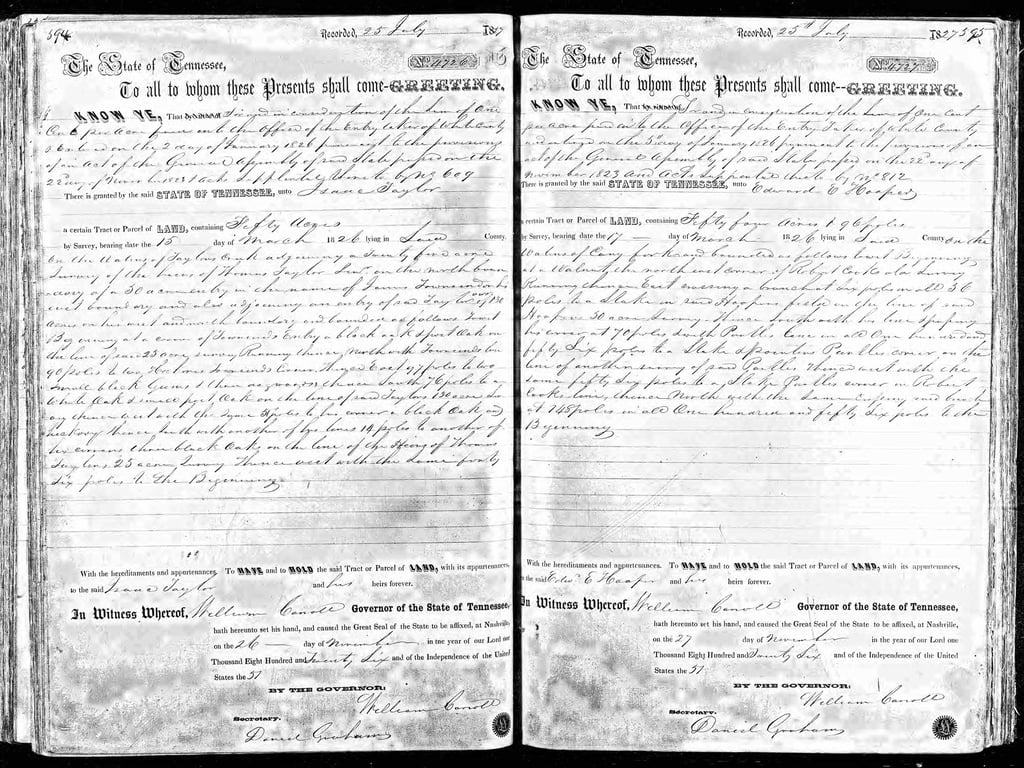 594
Recorded, 25 July 1827
The State of Tennessee, No 4726
To all to whom these Presents shall come--GREETING.
KNOW YE, That in consideration of the sum of One
Cent per Acre paid into the Office of the Entry taker of White County
& Entered on the 2 day of January 1826 pursuant to the provisions
of an Act of the General Assembly of said State passed on the
22 day of November 1823 & acts supplemental thereto by No 609
There is granted by the said STATE OF TENNESSEE, unto Isaac Taylor
a certain Tract or Parcel of LAND, containing Fifty Acres
by Survey, bearing date the 15 day of March 1826 lying in Said County.
On the Waters of Taylors Creek adjoining a Twenty five acre
Survey of the heirs of Thomas Taylor on the north boun
dary of a 50 acre entry in the name of James Townsend on his
east boundary and also adjoining an entry of said Taylor of 130
Acres on his west and north boundary and bounded as follows towit
Beginning at a corner of Townsends Entry a black oak & post Oak on
the line of said 25 acre survey Running thence North with Townsends line
90 poles to two Townsends Corner Thence East 77 poles to two
Small black Gums & thence South 76 poles to a
White Oak & small post Oak on the line of said Taylors 130 acre Sur
vey thence west with the same poles to his corner a black Oak and
hickory thence South with another of his lines 14 poles to another of
his corners three black Oaks on the line of the Heirs of Thomas
Taylors 25 acre Survey Thence west with the same forty
Six poles to the Beginning
With the hereditaments and appurtenances. To HAVE and to HOLD the said Tract or Parcel of LAND, with its appurtenances,
to the said Isaac Taylor and his heirs forever.
In Witness Whereof, William Carroll Governor of the State of Tennessee,
hath hereunto set his hand, and caused the Great Seal of the State to be affixed, at Nashville,
on the 26 day of November in the year of our Lord one
Thousand Eight Hundred and Twenty Six and of the Independence of the United
States the 51
BY THE GOVERNOR:
William Carroll
Secretary.
Daniel Graham
Recorded, 25th July 1827 595
The State of Tennessee, No 4727
To all to whom these Presents shall come--GREETING.
KNOW YE, That in consideration of the sum of One Cent
per acre paid into the Office of the Entry Taker of White County
and entered on the 3 day of January 1826 pursuant to the provisions of an
act of the General Assembly of said State passed on the 22 day of
November 1823 and Acts supplemental thereto by No 812
There is granted by the said STATE OF TENNESSEE, unto Edward E Hooper
a certain Tract or Parcel of LAND, containing Fifty four Acres & 96 poles
by Survey, bearing date the 17 day of March 1826 lying in Said County on the
Waters of Cany fork and bounded as follows towit Beginning
at a Walnut the north east corner of Robert Cooks old Survey
Running thence East crossing a branch at Six poles in all 56
poles to a Stake in said Hoopers field on the line of said
Hoopers 50 acre Survey Thence South with his line & passing
his corner at 70 poles & with line in all One hundred and
fifty Six poles to a Stake & pointers corner, on the
line of another survey of said Thence west with the
same fifty Six poles to a Stake corner in Robert
Cooks line, thence North with the same
at 148 poles in all One hundred and fifty Six poles to the
Beginning
With the hereditaments and appurtenances. To HAVE and to HOLD the said Tract or Parcel of LAND, with its appurtenances,
to the said Edwd E Hooper and his heirs forever.
In Witness Whereof, William Carroll Governor of the State of Tennessee,
hath hereunto set his hand, and caused the Great Seal of the State to be affixed, at Nashville,
on the 27 day of November in the year of our Lord one
Thousand Eight Hundred and Twenty Six and of the Independence of the United
States the 51
BY THE GOVERNOR:
William Carroll
Secretary.
Daniel Graham